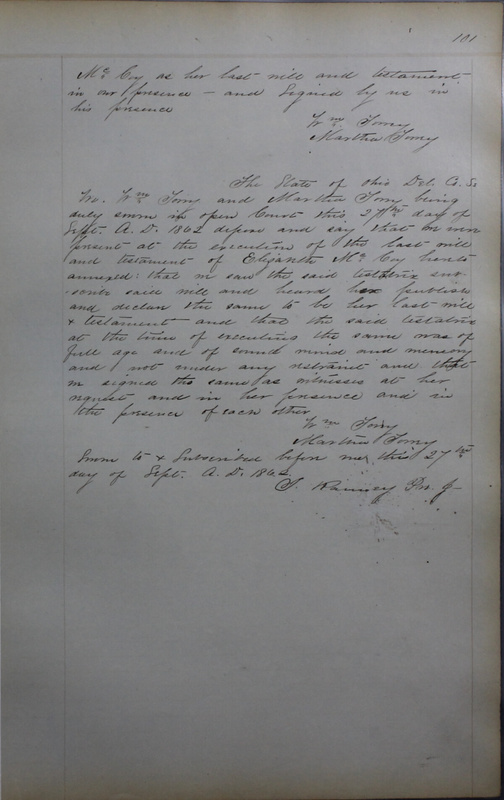 101
Mc Coy as her last will and testament
in our presence — and signed by us in
his presence
Wm Torry
Martha Torry
The State of Ohio Del. Co. Ss
We, Wm Torry and Martha Torry being
duly sworn in open Court this 27th day of
Sept. A. D. 1862 depose and say that we were
present at the execution of the last will
and testament of Elizabeth Mc Coy hereto
annexed: that we saw the said testatrix sub-
scribe said will and heard her publish
and declare the same to be her last will
& testament and that the said testatrix
at the time of executing the same was of
full age and of sound mind and memory
and not under any restraint and that
we signed the same as witnesses at her
request and in her presence and in
the presence of each other
Wm Torry
Martha Torry
Sworn to & Subscribed before me this 27th
day of Sept. A. D. 1862
Ramsey Pro. J